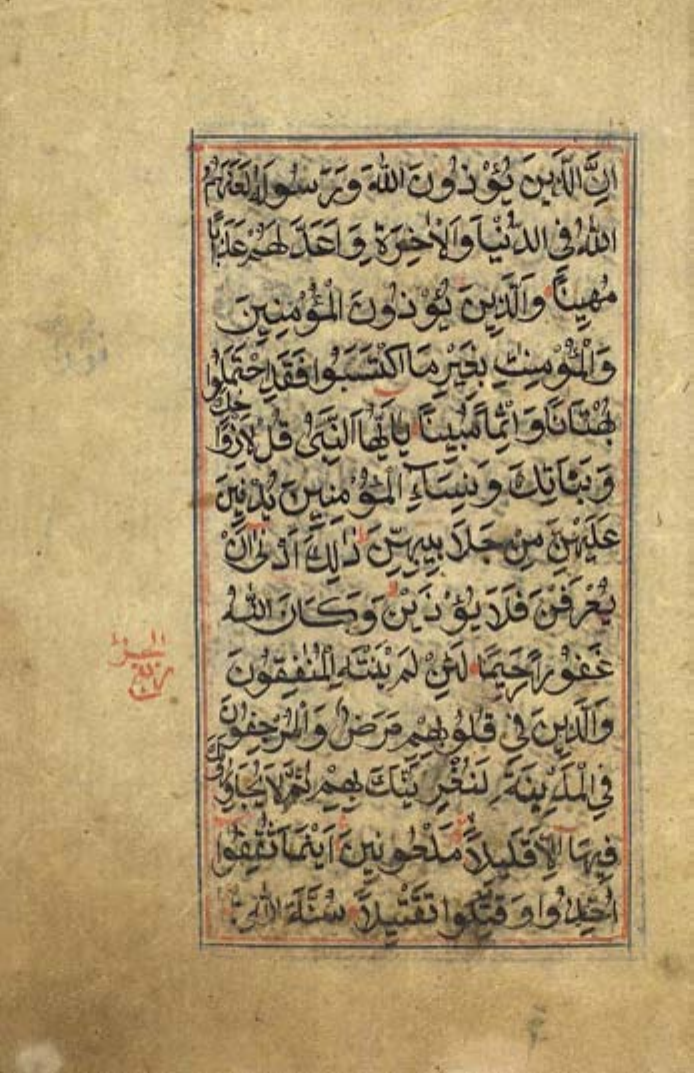 اِنَّ الَّذِينَ يُؤْذُونَ اللّٰهَ وَرَسُولَهُ لَعَنَهُمُ
اللّٰهُ فِى الدُّنْيَا وَالْاٰخِرَةِ وَاَعَدَّ لَهُمْ عَذَابًا
مُهِينًا وَالَّذِينَ يُؤْذُونَ الْمُؤْمِنِينَ
وَالْمُؤْمِنٰتِ بِغَيْرِ مَا اكْتَسَبُوا فَقَدِ احْتَمَلُوا
بُهْتَانًا وَاِثْمًا مُبِينًا يٰاَيُّهَا النَّبِىُّ قُلْ لِاَزْوَاجِكَ
وَبَنَاتِكَ وَنِسَاءِ الْمُؤْمِنِينَ يُدْنِينَ
عَلَيْهِنَّ مِنْ جَلَابِيبِهِنَّ ذٰلِكَ اَدْنٰى اَنْ
يُعْرَفْنَ فَلَا يُؤْذَيْنَ وَكَانَ اللّٰهُ
غَفُورًا رَحِيمًا لَئِنْ لَمْ يَنْتَهِ الْمُنٰفِقُونَ
وَالَّذِينَ فِى قُلُوبِهِمْ مَرَضٌ وَالْمُرْجِفُونَ
فِى الْمَدِينَةِ لَنُغْرِيَنَّكَ بِهِمْ ثُمَّ لَا يُجَاوِرُونَكَ
فِيهَا اِلَّا قَلِيلًا مَلْعُونِينَ اَيْنَمَا ثُقِفُوا
اُخِذُوا وَقُتِّلُوا تَقْتِيلًا سُنَّةَ اللّٰهِ